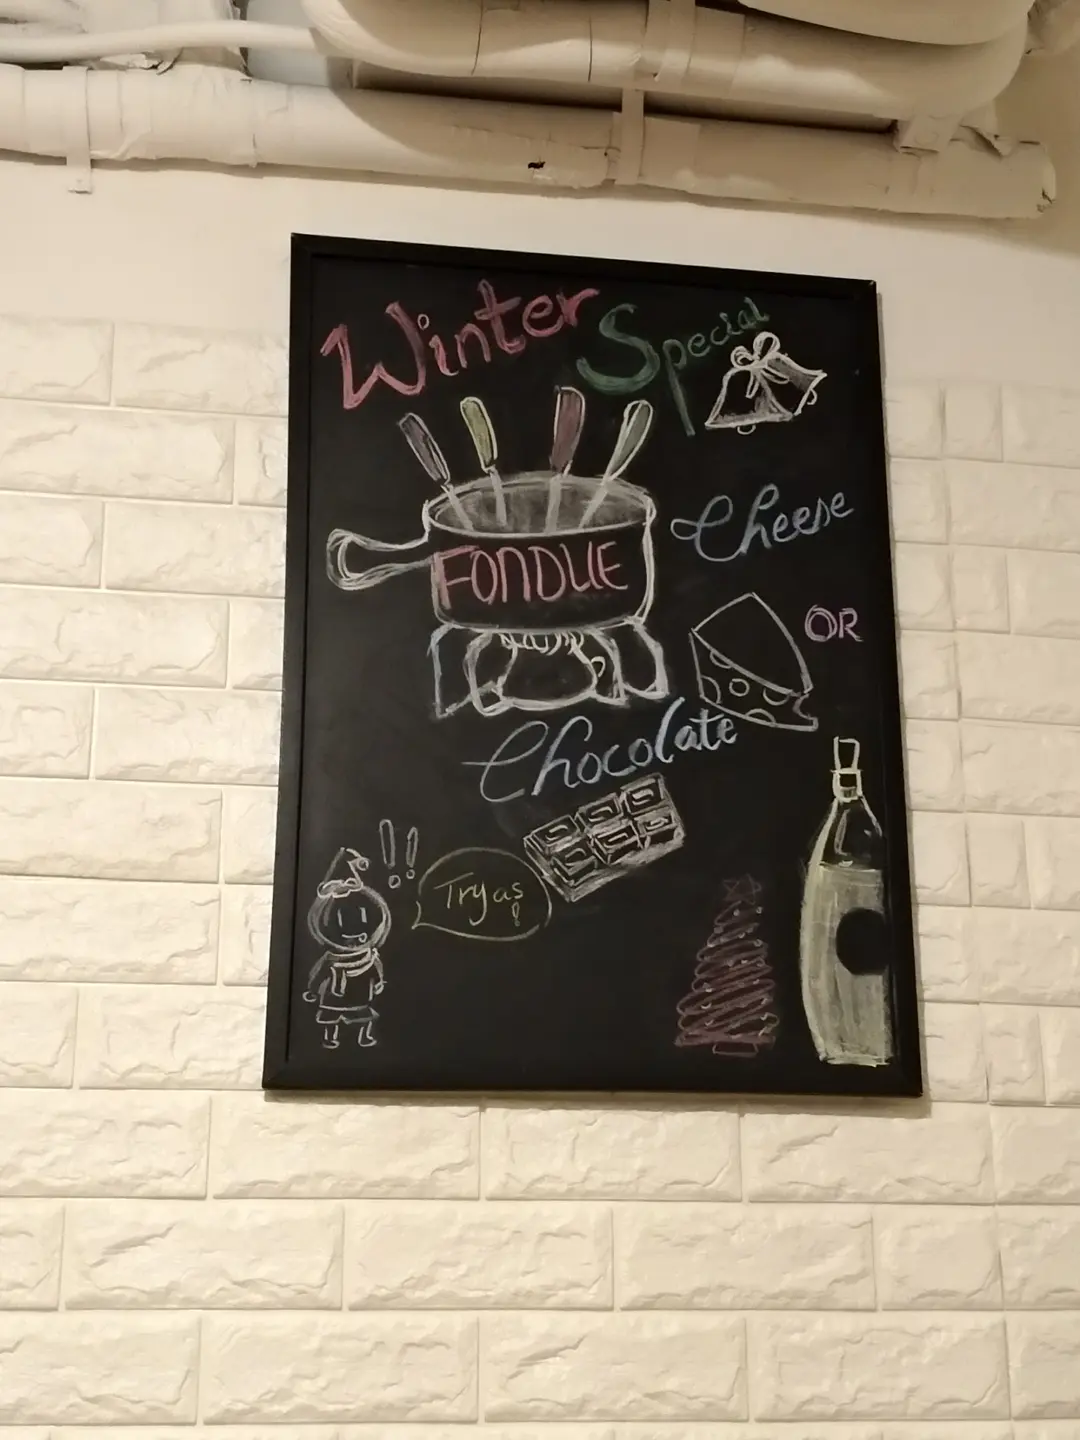 Winter Special
FONDUE
Cheese
OR
Chocolate
!!
Try as
!